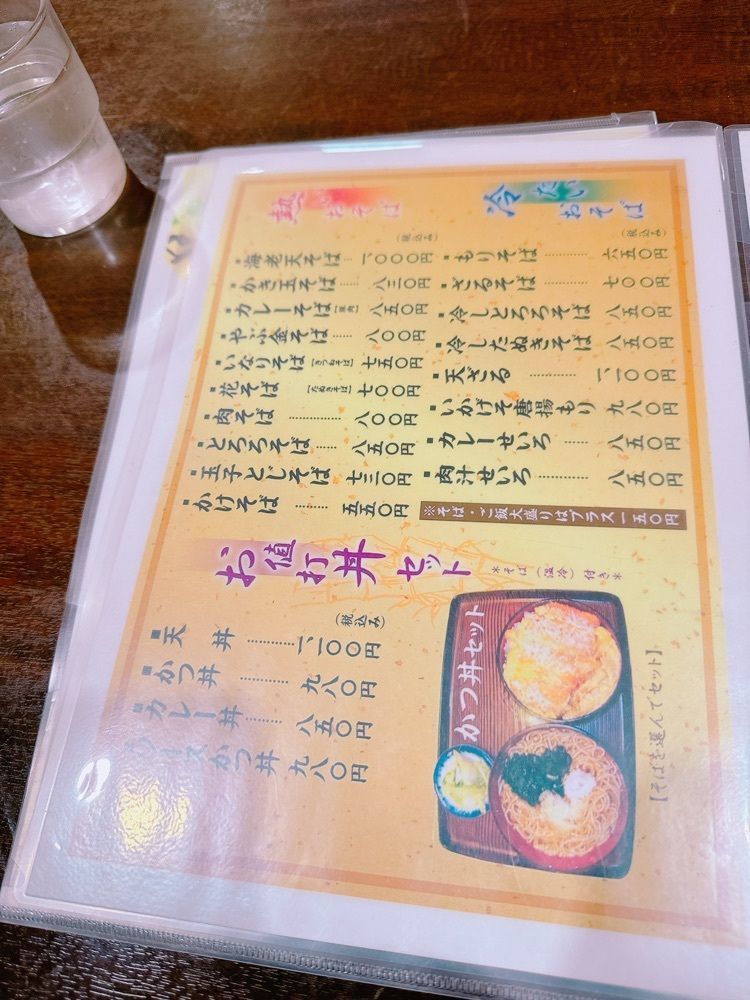 冷たいおそば
(税込み)
もりそば 六五〇円
ざるそば 七〇〇円
冷しとろろそば 八五〇円
冷したぬきそば 八五〇円
天ざる 一、一〇〇円
いかげそ唐揚もり 九八〇円
カレーせいろ 八五〇円
肉汁せいろ 八五〇円
※そば・ご飯大盛りはプラス一五〇円
熱いおそば
(税込み)
海老天そば 一、〇〇〇円
かき玉そば 八三〇円
カレーそば 八五〇円
やぶ金そば 八〇〇円
いなりそば [きつねそば] 七五〇円
花そば [たぬきそば] 七〇〇円
肉そば 八〇〇円
とろろそば 八五〇円
玉子とじそば 七三〇円
かけそば 五五〇円
お値打丼セット
*そば(温冷)付き*
(税込み)
天丼 一、一〇〇円
かつ丼 九八〇円
カレー丼 八五〇円
ソースかつ丼 九八〇円
かつ丼セット
【そばを選んでセット】